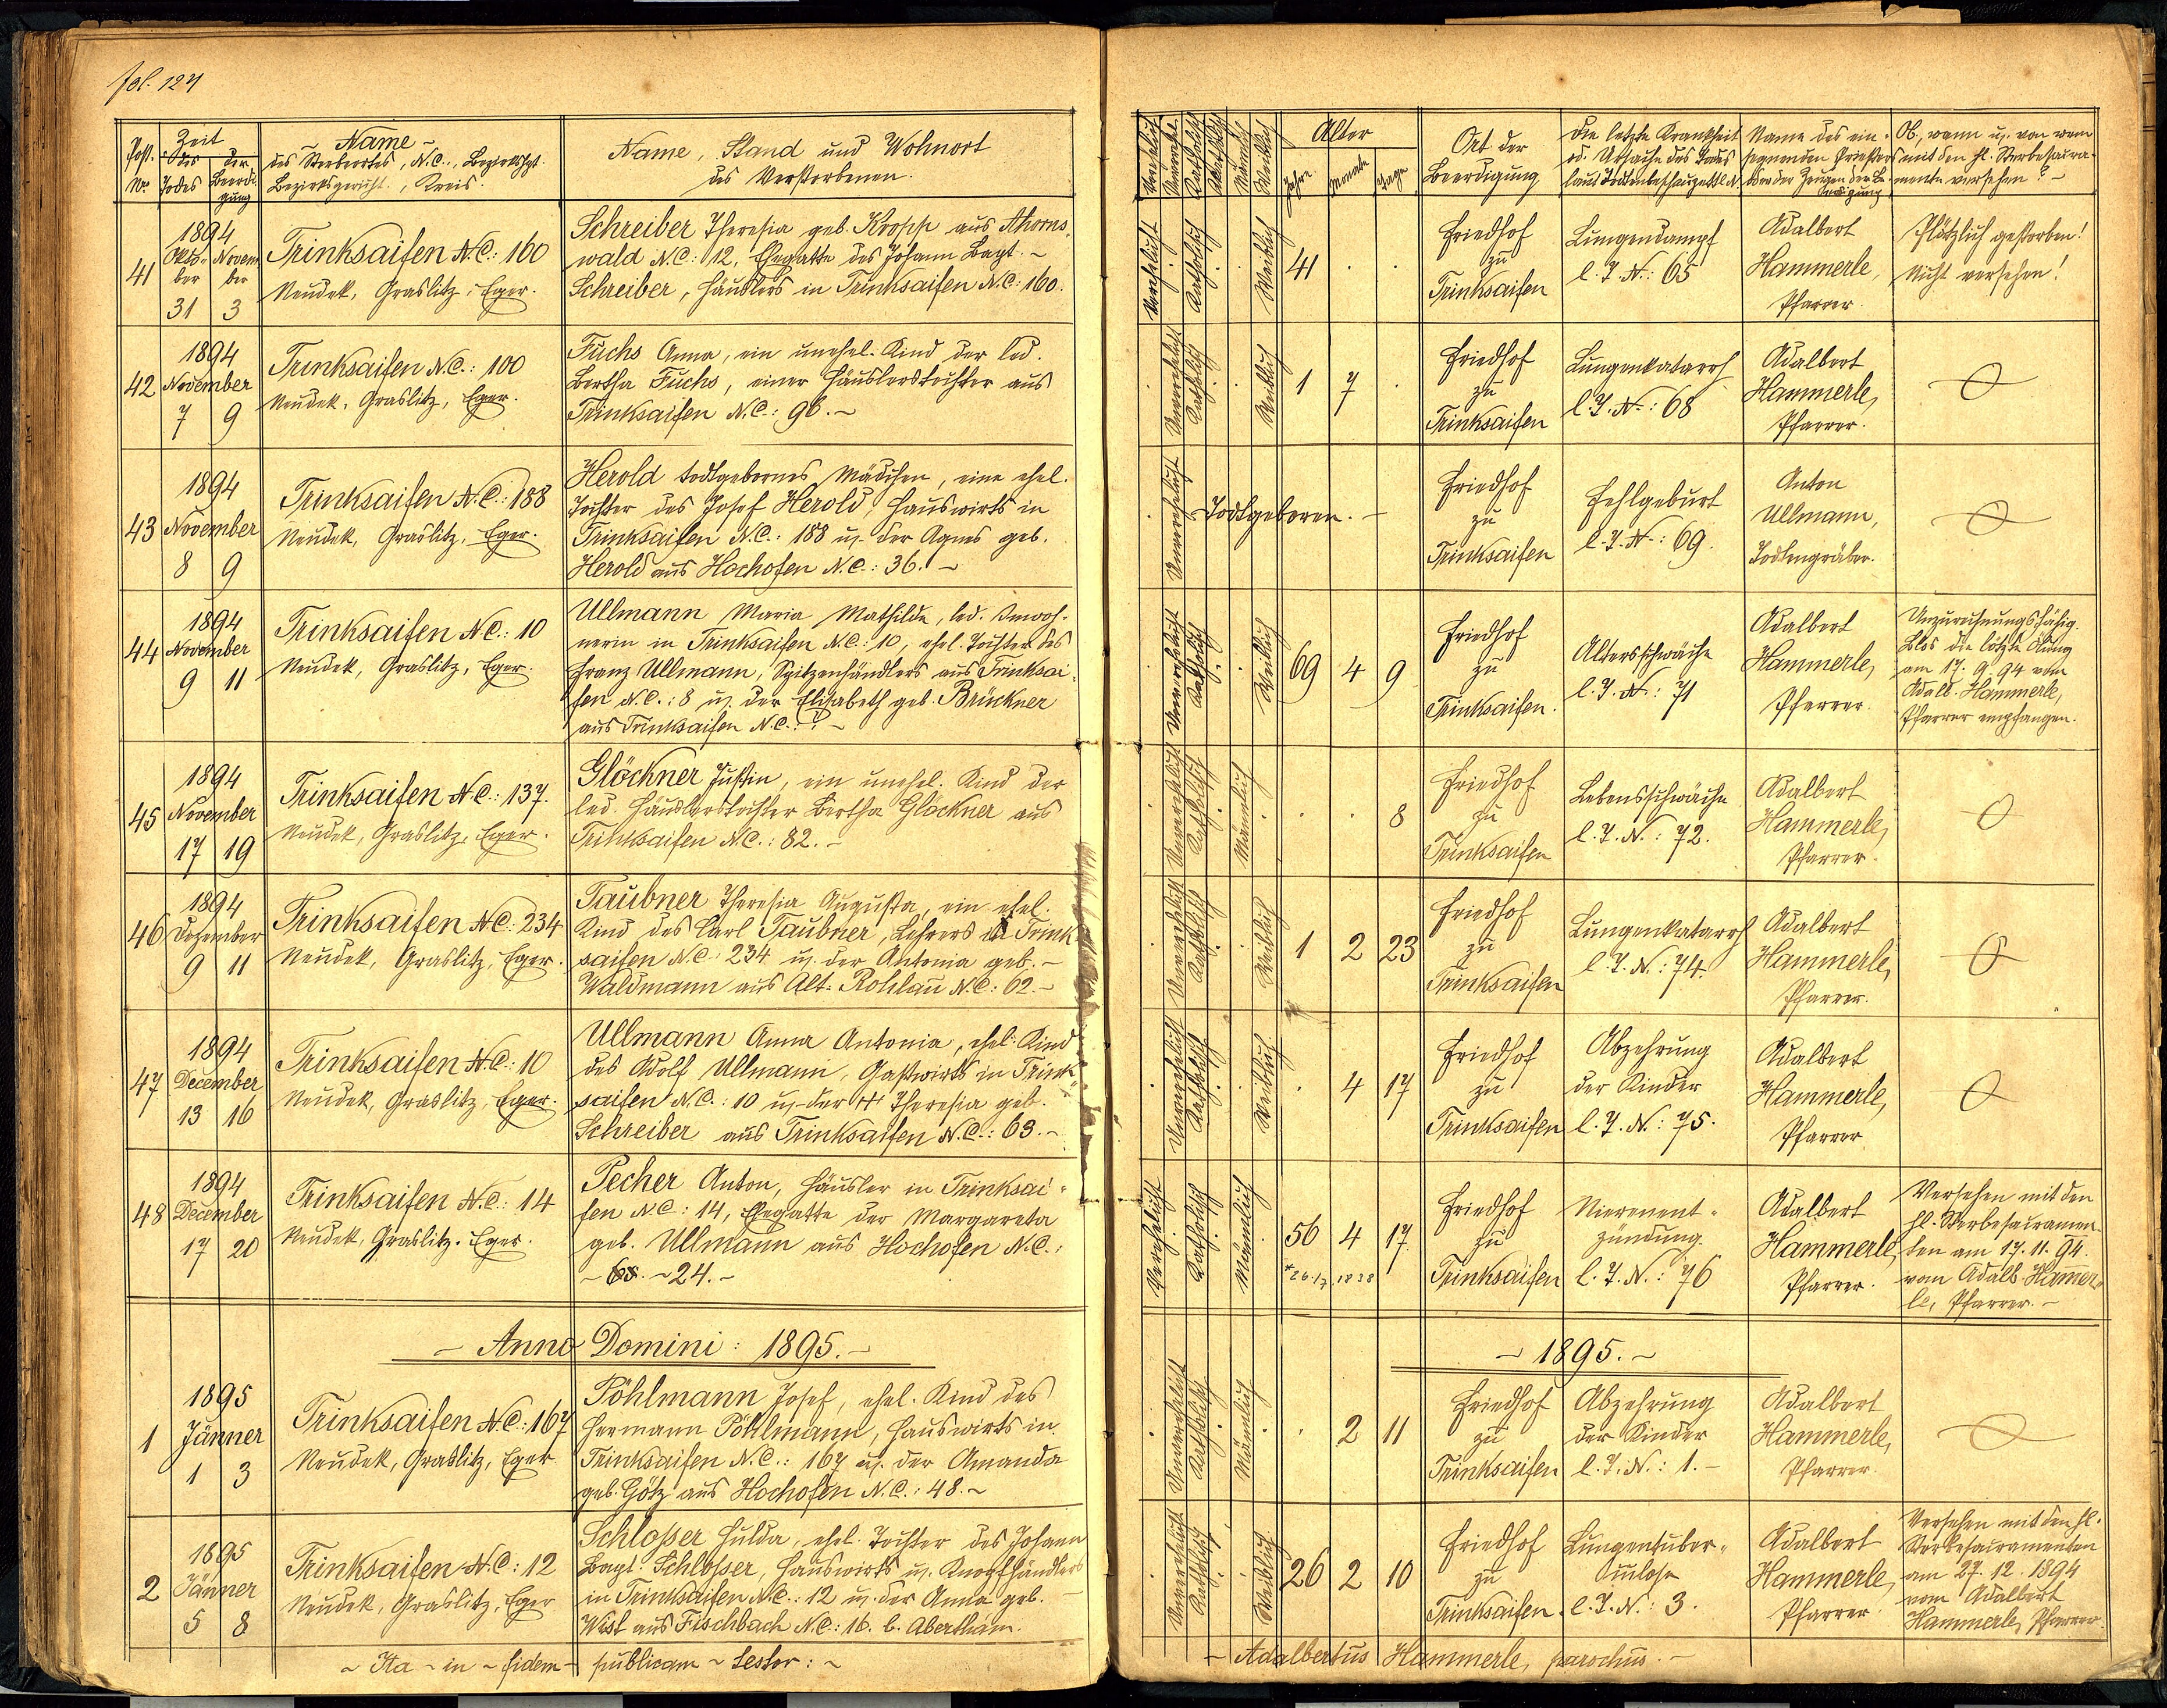 fol. 124
Post. No.
Zeit
des Todes
der Beerdigung
~ Name ~
des Sterbeortes, N.C., Bezirkshpt.
Bezirksgericht, Kreis.
Name, Stand und Wohnort
des Verstorbenen.
41
1894
Okto- Novem
ber ber
31 3
Trinksaifen N.C.: 160
Neudek, Graslitz, Eger.
Schreiber Theresia geb. Kropp aus Ahorns-
wald N.C.: 12, Ehegatte des Johann Bapt. ~
Schreiber, Häuslers in Trinksaifen N.C.: 160.
42
1894
November
7 9
Trinksaifen N.C.: 100
Neudek, Graslitz, Eger.
Fuchs Anna, ein unehel. Kind der led.
Bertha Fuchs, einer Häuslerstochter aus
Trinksaifen N.C.: 96. ~
43
1894
November
8 9
Trinksaifen N.C.: 188
Neudek, Graslitz, Eger.
Herold todtgebornes Mädchen, eine ehel.
Tochter des Josef Herold, Hauswirts in
Trinksaifen N.C.: 188 u. der Agnes geb.
Herold aus Hochofen N.C.: 36. ~
44
1894
November
9 11
Trinksaifen N.C.: 10
Neudek, Graslitz, Eger.
Ullmann Maria Mathilde, led. Inwoh-
nerin in Trinksaifen N.C.: 10, ehel. Tochter des
Franz Ullmann, Spitzenhändlers aus Trinksai-
fen N.C.: 8 u. der Elisabeth geb. Brückner
aus Trinksaifen N.C.: ? ~
45
1894
November
17 19
Trinksaifen N.C.: 137.
Neudek, Graslitz, Eger.
Glöckner Justin, ein unehel. Kind der
led. Häuslerstochter Bertha Glöckner aus
Trinksaifen N.C.: 82. ~
46
1894
Dezember
9 11
Trinksaifen N.C.: 234
Neudek, Graslitz, Eger.
Taubner Theresia Augusta, ein ehel.
Kind des Carl Taubner, Lehrers in Trink
saifen N.C.: 234 u. der Antonia geb. ~
Waldmann aus Alt-Rohlau N.C.: 62. ~
47
1894
December
13 16
Trinksaifen N.C.: 10
Neudek, Graslitz, Eger.
Ullmann Anna Antonia, ehel. Kind
des Adolf Ullmann, Gastwirts in Trink-
saifen N.C.: 10 u. der Theresia geb.
Schreiber aus Trinksaifen N.C.: 63. ~
48
1894
December
17 20
Trinksaifen N.C.: 14
Neudek, Graslitz. Eger.
Pecher Anton, Häusler in Trinksai-
fen N.C.: 14, Ehegatte der Margareta
geb. Ullmann aus Hochofen N.C.:
~ 24. ~
~ Anno Domini: 1895. ~
1
1895
Jänner
1 3
Trinksaifen N.C.: 167
Neudek, Graslitz, Eger
Pöhlmann Josef, ehel. Kind des
Hermann Pöhlmann, Hauswirts in
Trinksaifen N.C.: 167 u. der Amanda
geb. Götz aus Hochofen N.C.: 48. ~
2
1895
Jänner
5 8
Trinksaifen N.C.: 12
Neudek, Graslitz, Eger
Schlosser Hulda, ehel. Tochter des Johann
Bapt. Schlosser, Hauswirts u. Knopfhändlers
in Trinksaifen N.C.: 12 u. der Anna geb.
Wist aus Fischbach N.C.: 16. b. Abertham.
~ Ita ~ in ~ fidem ~ publicam ~ testor: ~
Verehelicht
Unvereh.
Katholisch
Akatholisch
Männlich
Weiblich
Alter
Jahre
Monate
Tage
Ort der
Beerdigung
Die letzte Krankheit
od. Ursache des Todes
laut Todtenbeschauzettel N.
Name des ein-
segnenden Priesters
oder der Zeugen der Be-
erdigung
Ob, wann u. von wem
mit den hl. Sterbesacra-
menten versehen? ~
Verehelicht
Katholisch
Weiblich
41 . .
Friedhof
zu
Trinksaifen
Lungendampf
l. T. N.: 65
Adalbert
Hammerle,
Pfarrer.
Plötzlich gestorben!
Nicht versehen!
Unverehelicht
Katholisch
Weiblich
1 7 .
Friedhof
zu
Trinksaifen
Lungenkatarrh
l. T. N.: 68
Adalbert
Hammerle,
Pfarrer.
Unverehelicht
Todtgeboren. ~
Friedhof
zu
Trinksaifen
Fehlgeburt
l. T. N.: 69.
Anton
Ullmann,
Todtengräber.
Unverehelicht
Katholisch
Weiblich
69 4 9
Friedhof
zu
Trinksaifen.
Altersschwäche
l. T. N.: 71
Adalbert
Hammerle,
Pfarrer.
Unzurechnungsfähig.
Blos die letzte Ölung
am 17. 9. 94 vom
Adalb. Hammerle,
Pfarrer empfangen.
Unverehelicht
Katholisch
Männlich
. . 8
Friedhof
zu
Trinksaifen
Lebensschwäche
l. T. N.: 72.
Adalbert
Hammerle,
Pfarrer.
Unverehelicht
Katholisch
Weiblich
1 2 23
Friedhof
zu
Trinksaifen
Lungenkatarrh
l. T. N.: 74.
Adalbert
Hammerle,
Pfarrer.
Unverehelicht
Katholisch
Weiblich
. 4 17
Friedhof
zu
Trinksaifen
Abzehrung
der Kinder
l. T. N.: 75.
Adalbert
Hammerle,
Pfarrer
Verehelicht
Katholisch
Männlich
56 4 17
*26.7.1838
Friedhof
zu
Trinksaifen
Nierenent-
zündung.
l. T. N.: 76
Adalbert
Hammerle,
Pfarrer.
Versehen mit den
hl. Sterbesacramen-
ten am 17. 11. 94.
vom Adalb. Hamer-
le, Pfarrer. ~
~ 1895. ~
Unverehelicht
Katholisch
Männlich
. 2 11
Friedhof
zu
Trinksaifen
Abzehrung
der Kinder
l. T. N.: 1. ~
Adalbert
Hammerle,
Pfarrer.
Unverehelicht
Katholisch
Weiblich
26 2 10
Friedhof
zu
Trinksaifen.
Lungentuber-
culose
l. T. N.: 3.
Adalbert
Hammerle,
Pfarrer
Versehen mit den hl.
Sterbesacramenten
am 27. 12. 1894
vom Adalbert
Hammerle, Pfarrer.
~ Adalbertus Hammerle, parochus. ~